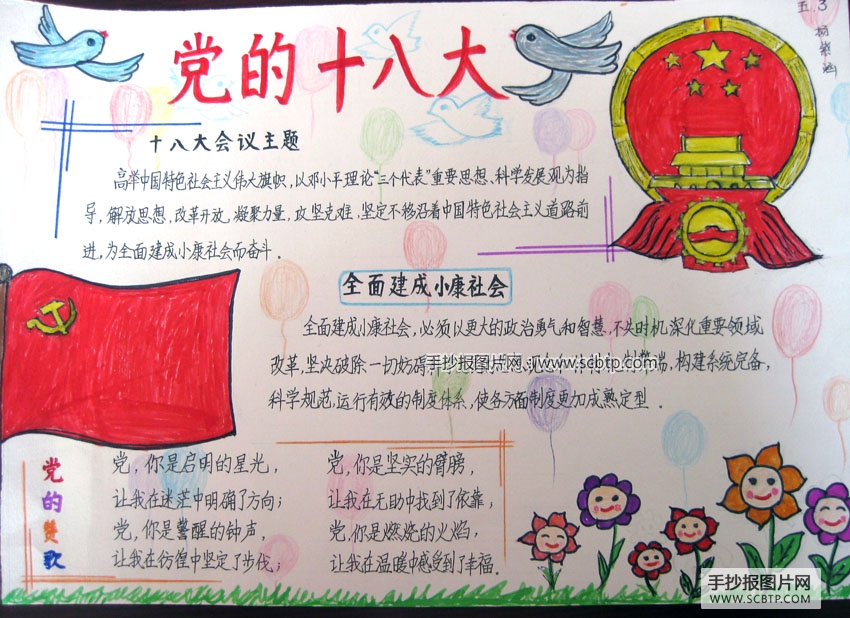 五.3
杨紫涵
党的十八大
十八大会议主题
高举中国特色社会主义伟大旗帜,以邓小平理论“三个代表”重要思想、科学发展观为指
导,解放思想,改革开放,凝聚力量,攻坚克难,坚定不移沿着中国特色社会主义道路前
进,为全面建成小康社会而奋斗.
全面建成小康社会
全面建成小康社会,必须以更大的政治勇气和智慧,不失时机深化重要领域
改革,坚决破除一切妨碍
手抄报图片网 www.scbtp.com
弊端,构建系统完备,
科学规范,运行有效的制度体系,使各方面制度更加成熟定型.
党的赞歌
党,你是启明的星光,
让我在迷茫中明确了方向;
党,你是警醒的钟声,
让我在彷徨中坚定了步伐;
党,你是坚实的臂膀,
让我在无助中找到了依靠,
党,你是燃烧的火焰,
让我在温暖中感受到了幸福.
手抄报图片网
WWW.SCBTP.COM